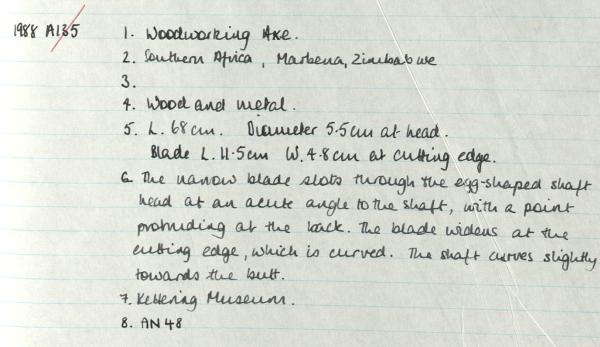 1988 A135 1. Woodworking Axe.
2. Southern Africa, Marbena, Zimbabwe
3.
4. Wood and metal.
5. L. 68cm. Diameter 5.5cm at head.
Blade L. 11.5cm W. 4.8cm at cutting edge.
6. The narrow blade slots through the egg-shaped shaft
head at an acute angle to the shaft, with a point
protruding at the back. The blade widens at the
cutting edge, which is curved. The shaft curves slightly
towards the butt.
7. Kettering Museum.
8. AN48